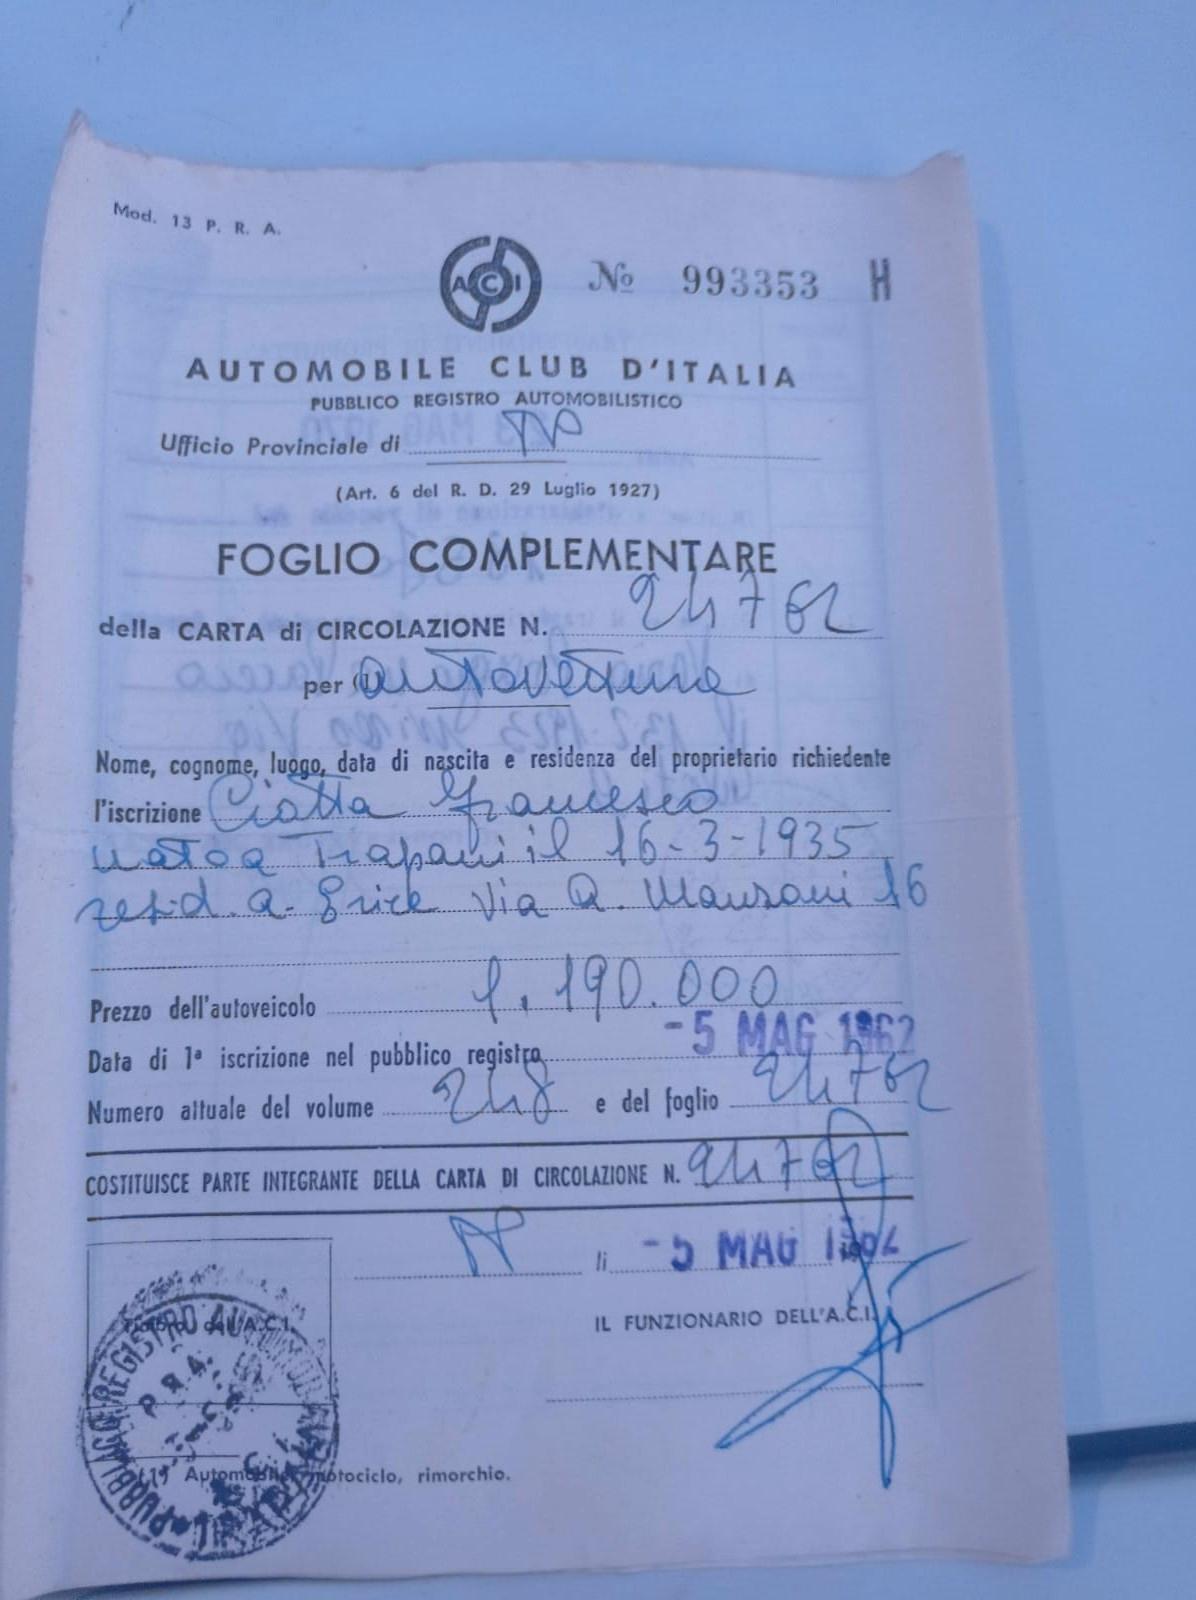 Mod. 13 P. R. A.
ACI
No 993353 H
AUTOMOBILE CLUB D'ITALIA
PUBBLICO REGISTRO AUTOMOBILISTICO
Ufficio Provinciale di TP
(Art. 6 del R. D. 29 Luglio 1927)
FOGLIO COMPLEMENTARE
della CARTA di CIRCOLAZIONE N. 24762
per (1) autovettura
Nome, cognome, luogo, data di nascita e residenza del proprietario richiedente
l'iscrizione Ciotta Francesco
nato a Trapani il 16-3-1935
resid. a Erice Via A. Manzoni 16
Prezzo dell'autoveicolo £. 190.000
Data di 1ª iscrizione nel pubblico registro -5 MAG 1962
Numero attuale del volume 248 e del foglio 24762
COSTITUISCE PARTE INTEGRANTE DELLA CARTA DI CIRCOLAZIONE N. 24762
TP li -5 MAG 1962
IL FUNZIONARIO DELL'A.C.I.
Timbro dell'A.C.I.
PUBBLICO REGISTRO
P.R.A.
(1) Automobile, motociclo, rimorchio.